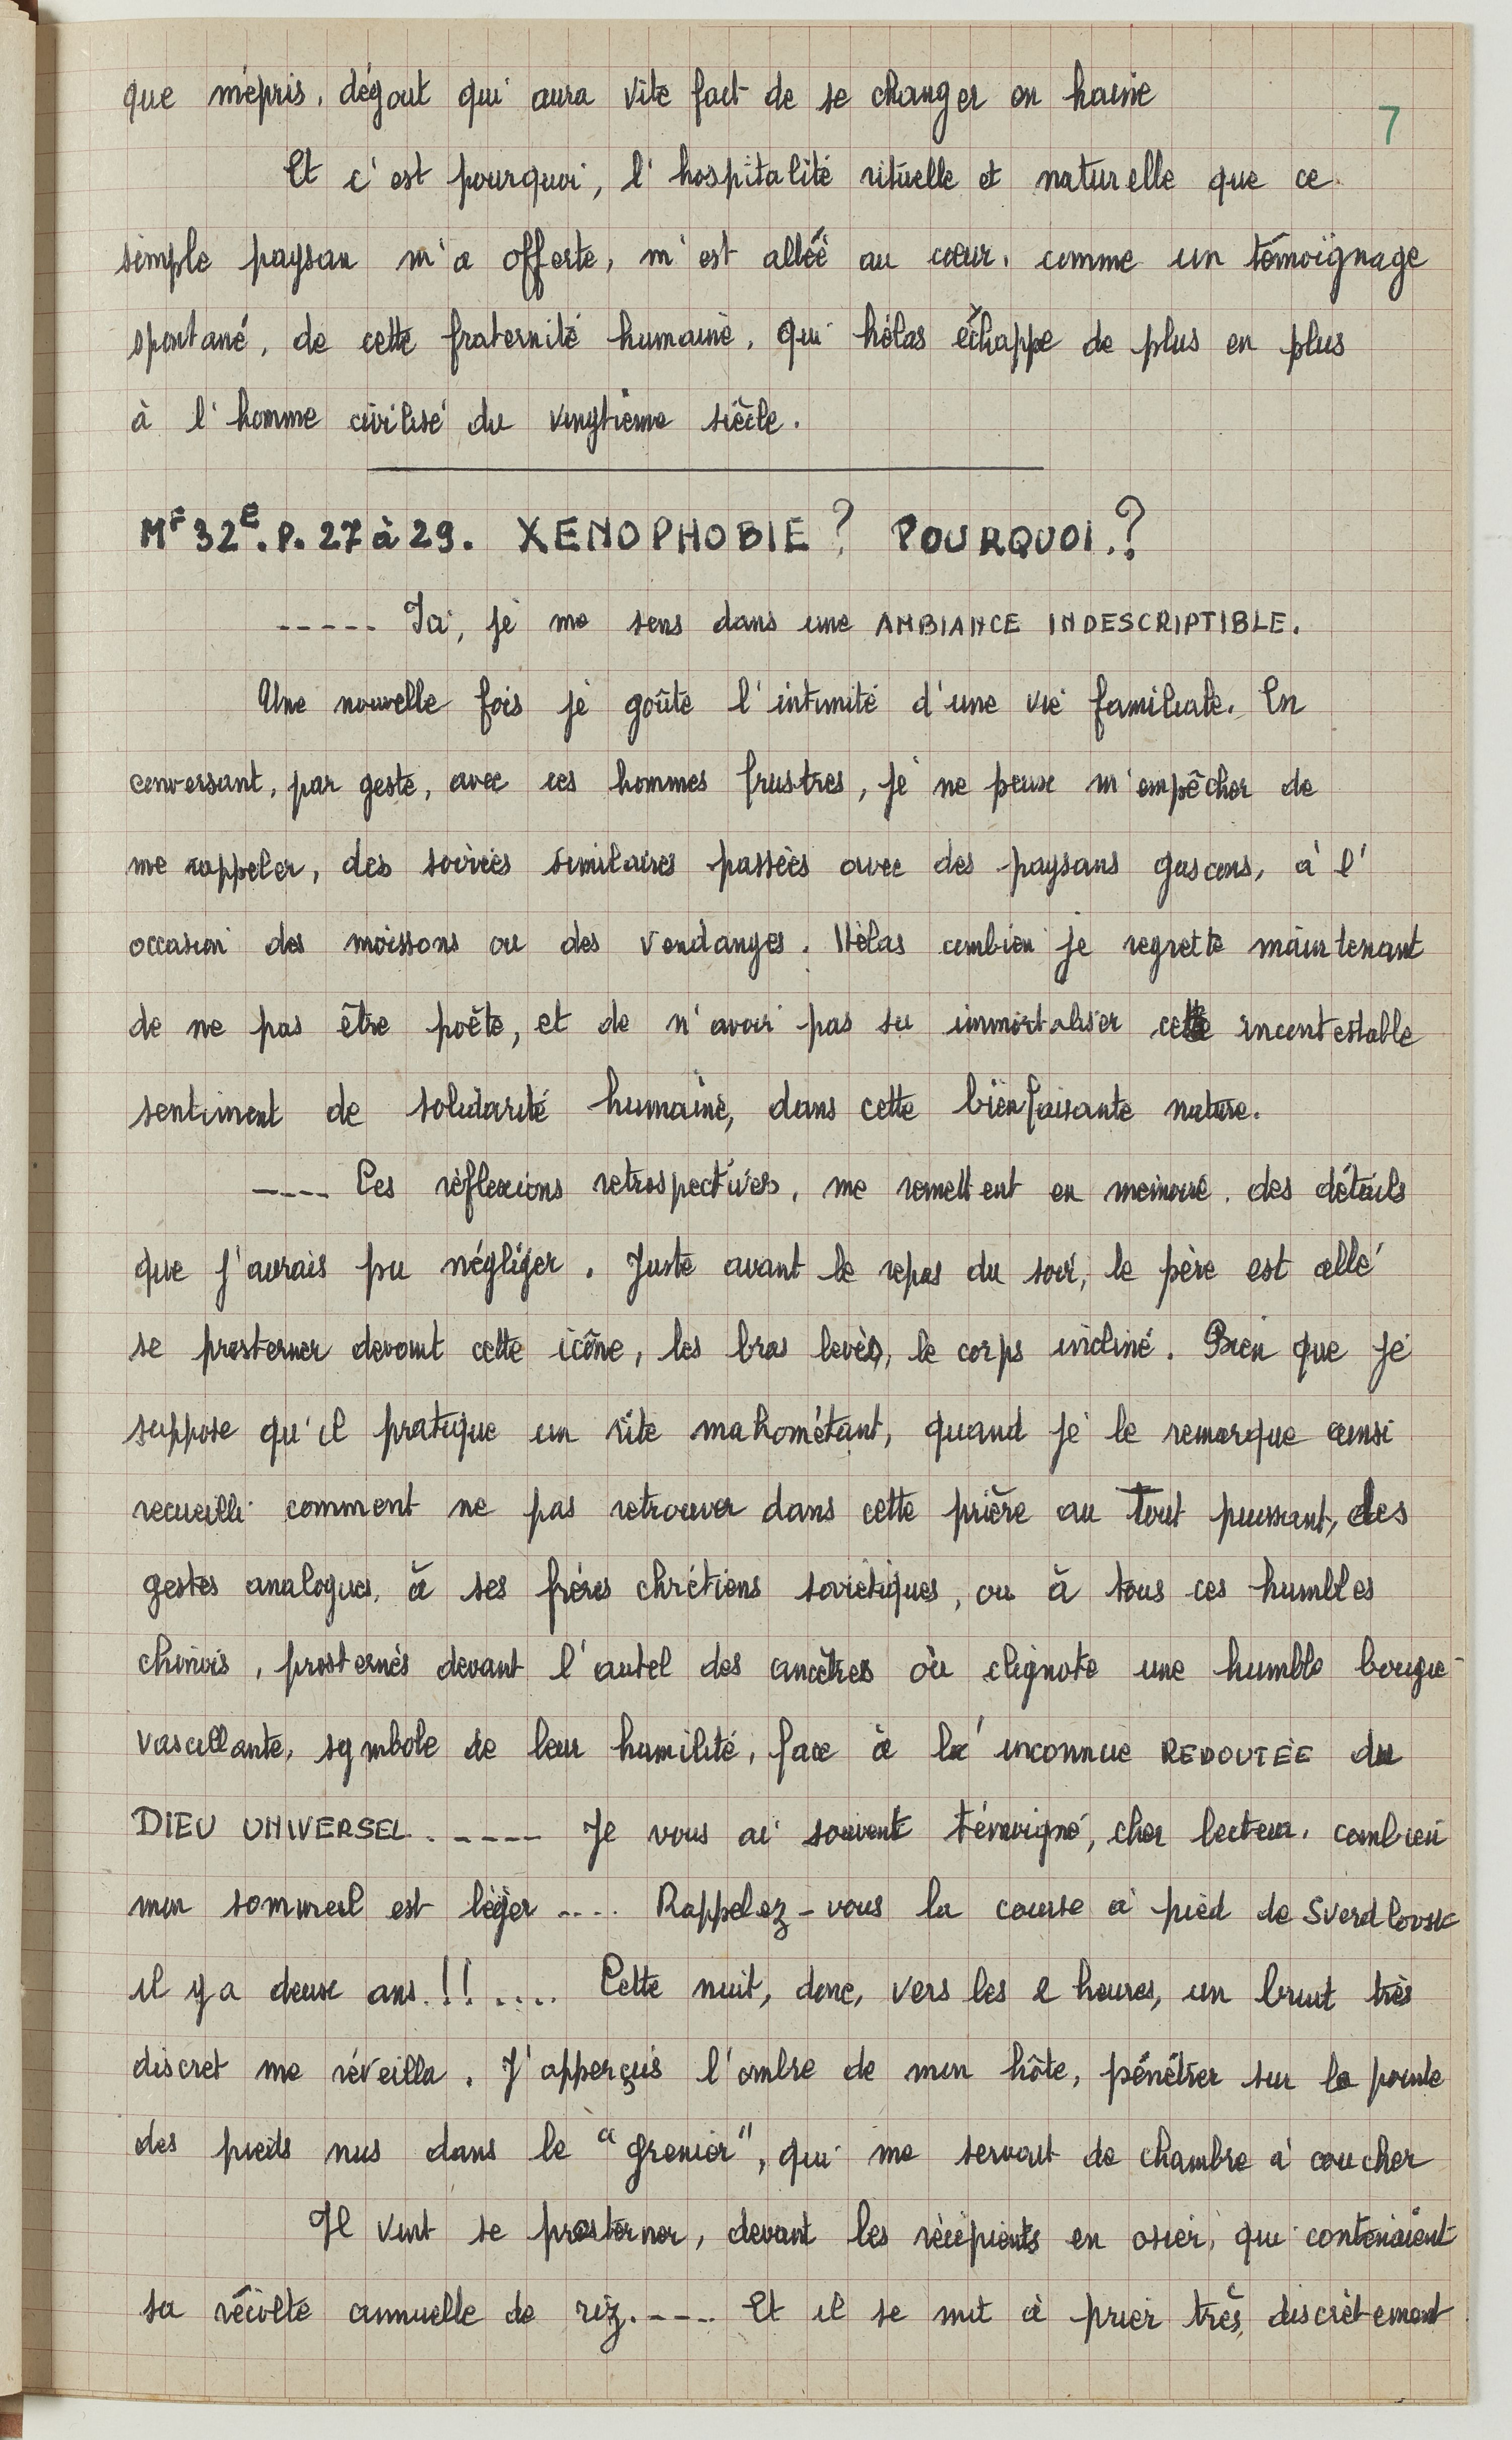 que mépris, dégout qui aura vite fait de se changer en haine
7
Et c'est pourquoi, l'hospitalité rituelle et naturelle que ce
simple paysan m'a offerte, m'est allée au cœur, comme un témoignage
spontané, de cette fraternité humaine, qui hélas échappe de plus en plus
à l'homme civilisé du vingtième siècle.
Mf 32E. P. 27 à 29. XENOPHOBIE ? POURQUOI.?
----- Ici, je me sens dans une AMBIANCE INDESCRIPTIBLE.
Une nouvelle fois je goûte l'intimité d'une vie familiale. En
conversant, par geste, avec ces hommes frustres, je ne peux m'empêcher de
me rappeler, des soirées similaires passées avec des paysans gascons, à l'
occasion des moissons ou des vendanges. Hélas combien je regrette maintenant
de ne pas être poète, et de n'avoir pas su immortaliser cette incontestable
sentiment de solidarité humaine, dans cette bienfaisante nature.
---- Ces réflexions retrospectives, me remettent en memoire, des détails
que j'aurais pu négliger. Juste avant le repas du soir, le père est allé
se prosterner devant cette icône, les bras levés, le corps incliné. Bien que je
suppose qu'il pratique un rite mahométant, quand je le remarque ainsi
recueilli comment ne pas retrouver dans cette prière au Tout puissant, des
gestes analogues, à ses frères chrétiens soviétiques, ou à tous ces humbles
chinois, prosternés devant l'autel des ancêtres où clignote une humble bougie
vascillante, symbole de leur humilité, face à la inconnue REDOUTÉE du
DIEU UNIVERSEL. ----- Je vous ai souvent témoigné, cher lecteur, combien
mon sommeil est léger .... Rappelez-vous la course à pied de Sverdlovsk
il y a deux ans.!! .... Cette nuit, donc, vers les 2 heures, un bruit très
discret me réveilla. J'apperçus l'ombre de mon hôte, pénétrer sur la pointe
des pieds nus dans le "grenier", qui me servait de chambre à coucher
Il vint se prosterner, devant les récipients en osier, qui contenaient
sa récolte annuelle de riz. ---- Et il se mit à prier très, discrètement